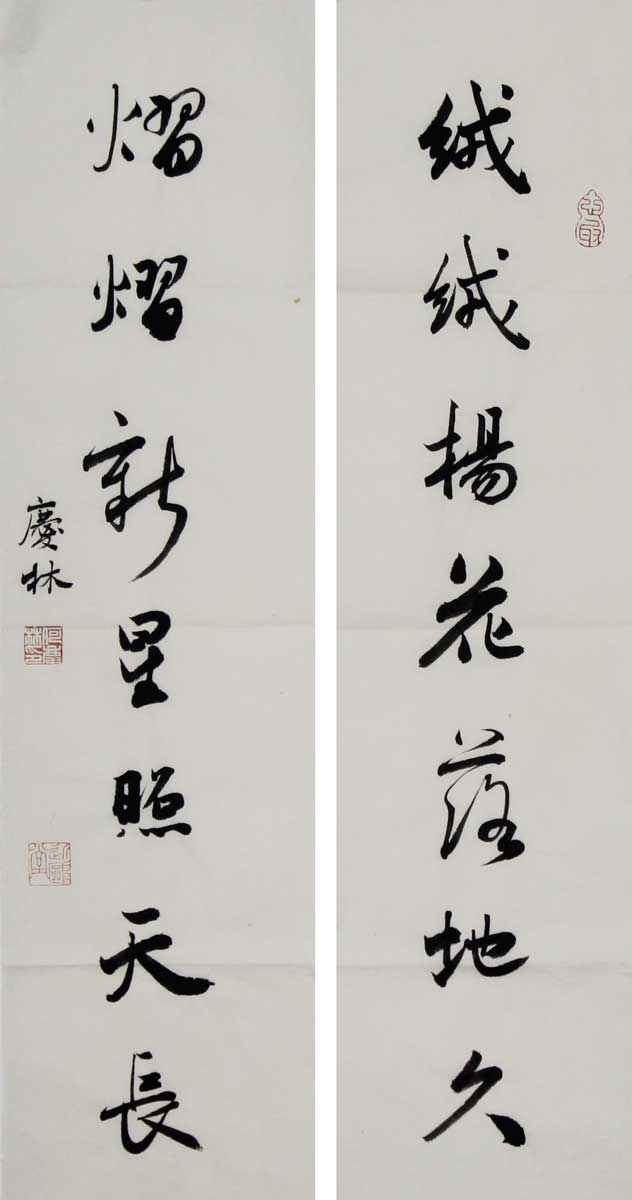 絨絨楊花落地久
熠熠新星照天長
慶林